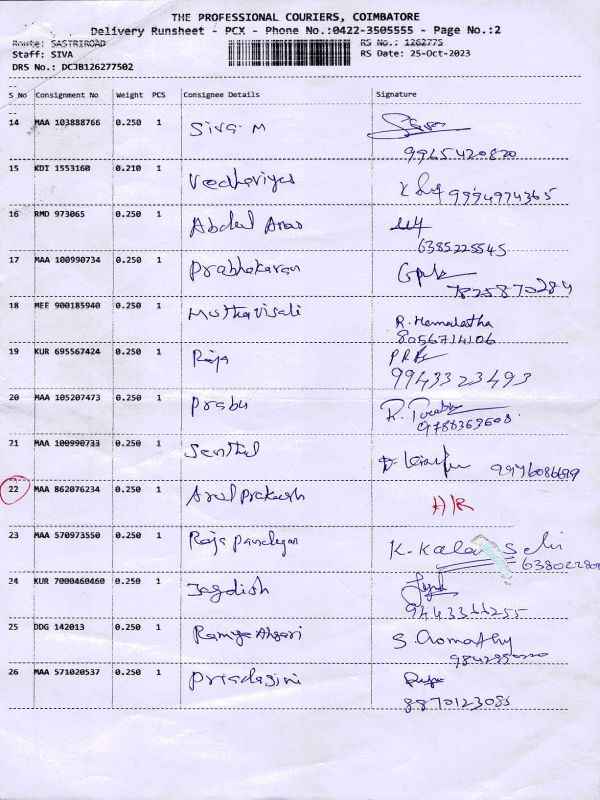 THE PROFESSIONAL COURIERS, COIMBATORE
Delivery Runsheet - PCX - Phone No.:0422-3505555 - Page No.:2
Route: SASTRIROAD RS No.: 1262775
Staff: SIVA RS Date: 25-Oct-2023
DRS No.: DCJB126277502
S No Consignment No Weight PCS Consignee Details Signature
14 MAA 103888766 0.250 1 Siva M
9965420820
15 KDT 1553160 0.210 1 9994974365
16 RMD 973065 0.250 1 Abdul
6385225545
17 MAA 100990734 0.250 1 Prabhakaran
7825870284
18 MEE 900185940 0.250 1 Muthavisali
R. Hemalatha
8056714106
19 KUR 695567424 0.250 1 Raja
9943323493
20 MAA 105207473 0.250 1 Prabu
9788369608
21 MAA 100990733 0.250 1 Senthil
22 MAA 862076234 0.250 1 Arul Prakash H/R
23 MAA 570973550 0.250 1 Raja Pandiyan K. Kalai Selvi
24 KUR 7000460460 0.250 1 Jagdish
9443366255
25 DDG 142013 0.250 1 S. Gomathy
26 MAA 571020537 0.250 1 Priadagini
8870123085